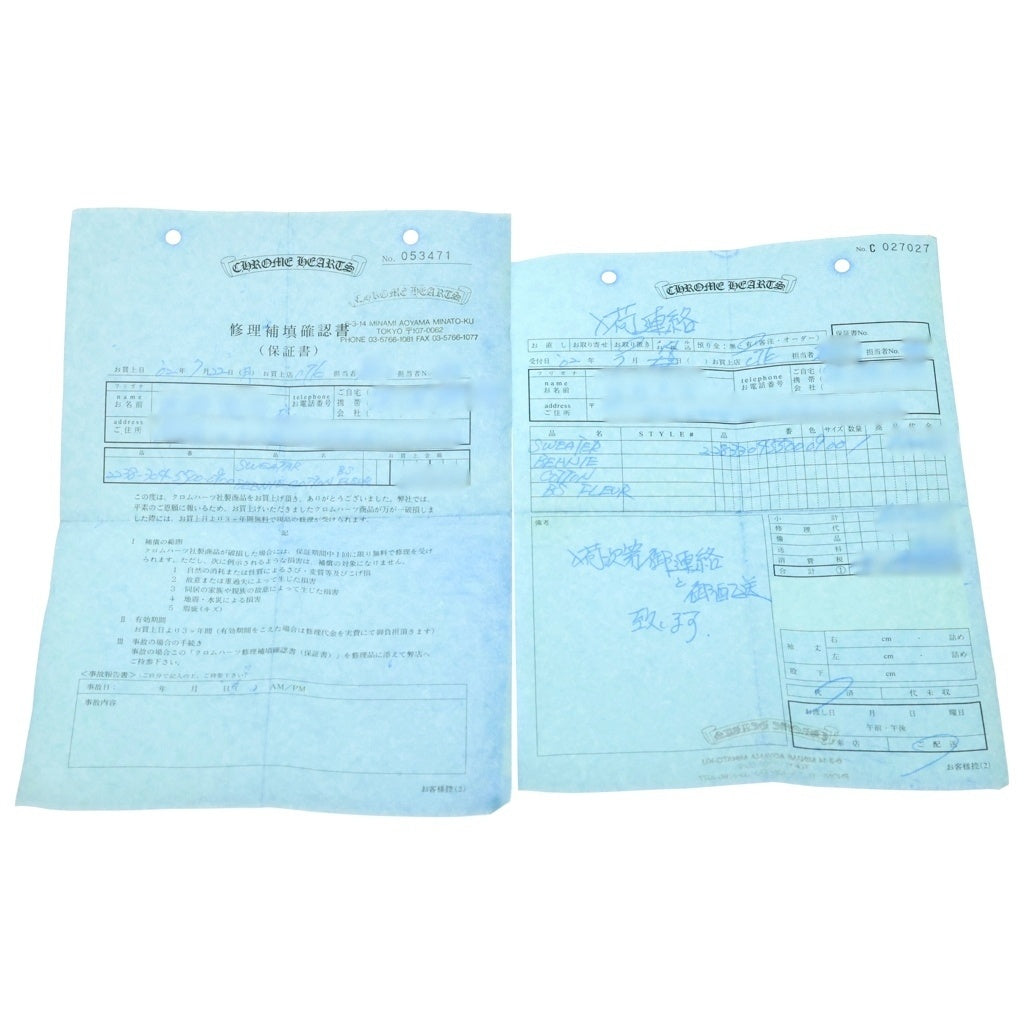 CHROME HEARTS
No. 053471
CHROME HEARTS
6-3-14 MINAMI AOYAMA MINATO-KU
TOKYO 〒107-0062
PHONE 03-5766-1081 FAX 03-5766-1077
修理補填確認書
(保証書)
お買上日 '02 年 7 月 22 日 お買上店 担当者 担当者No.
フリガナ
name
お名前
telephone
お電話番号
ご自宅 (
携 帯 (
会 社 (
address
ご住所
品 番 品 名 お買上金額
SWEATER BS
COTTON FLEUR
この度は、クロムハーツ社製商品をお買上げ頂き、ありがとうございました。弊社では、
平素のご恩顧に報いるため、お買上げいただきましたクロムハーツ商品が万が一破損しま
した際には、お買上日より3ヶ年間無料で現品の修理が受けられます。
記
Ⅰ 補償の範囲
クロムハーツ社製商品が破損した場合には、保証期間中1回に限り無料で修理を受け
られます。ただし、次に例示されるような損害は、補償の対象になりません。
1 自然の消耗または性質によるさび・変質等及びこげ損
2 故意または重過失によって生じた損害
3 同居の家族や親族の故意によって生じた損害
4 地震・水災による損害
5 瑕疵(キズ)
Ⅱ 有効期間
お買上日より3ヶ年間(有効期間をこえた場合は修理代金を実費にて御負担頂きます)
Ⅲ 事故の場合の手続き
事故の場合この「クロムハーツ修理補填確認書(保証書)」を修理品に添えて弊店へ
ご持参下さい。
<事故報告書>(ご自分で記入の上、ご持参下さい)
事故日: 年 月 日 AM/PM
事故内容
お客様控(3)
No. C 027027
CHROME HEARTS
入荷連絡
お直し お取り寄せ お取り置き 預り金:無・有 客注・オーダー)
保証書No.
受付日 '02 年 月 日 ( ) お買上店 担当者 担当者No.
フリガナ
name
お名前
telephone
お電話番号
ご自宅 (
携 帯 (
会 社 (
address
ご住所
〒
品 名 STYLE# 品 番 色 サイズ 数量 商品代金
SWEATER
BEANIE
COTTON
BS FLEUR
備考
入荷次第御連絡
と御配送
致します.
小計
修理代
備品
送料
消費税
合計 ①
袖丈 右 cm ・ 詰め
左 cm ・ 詰め
股下 cm
代済 代未収
お渡し日 月 日 曜日
午前・午後
ご来店 ご配送
お客様控(2)